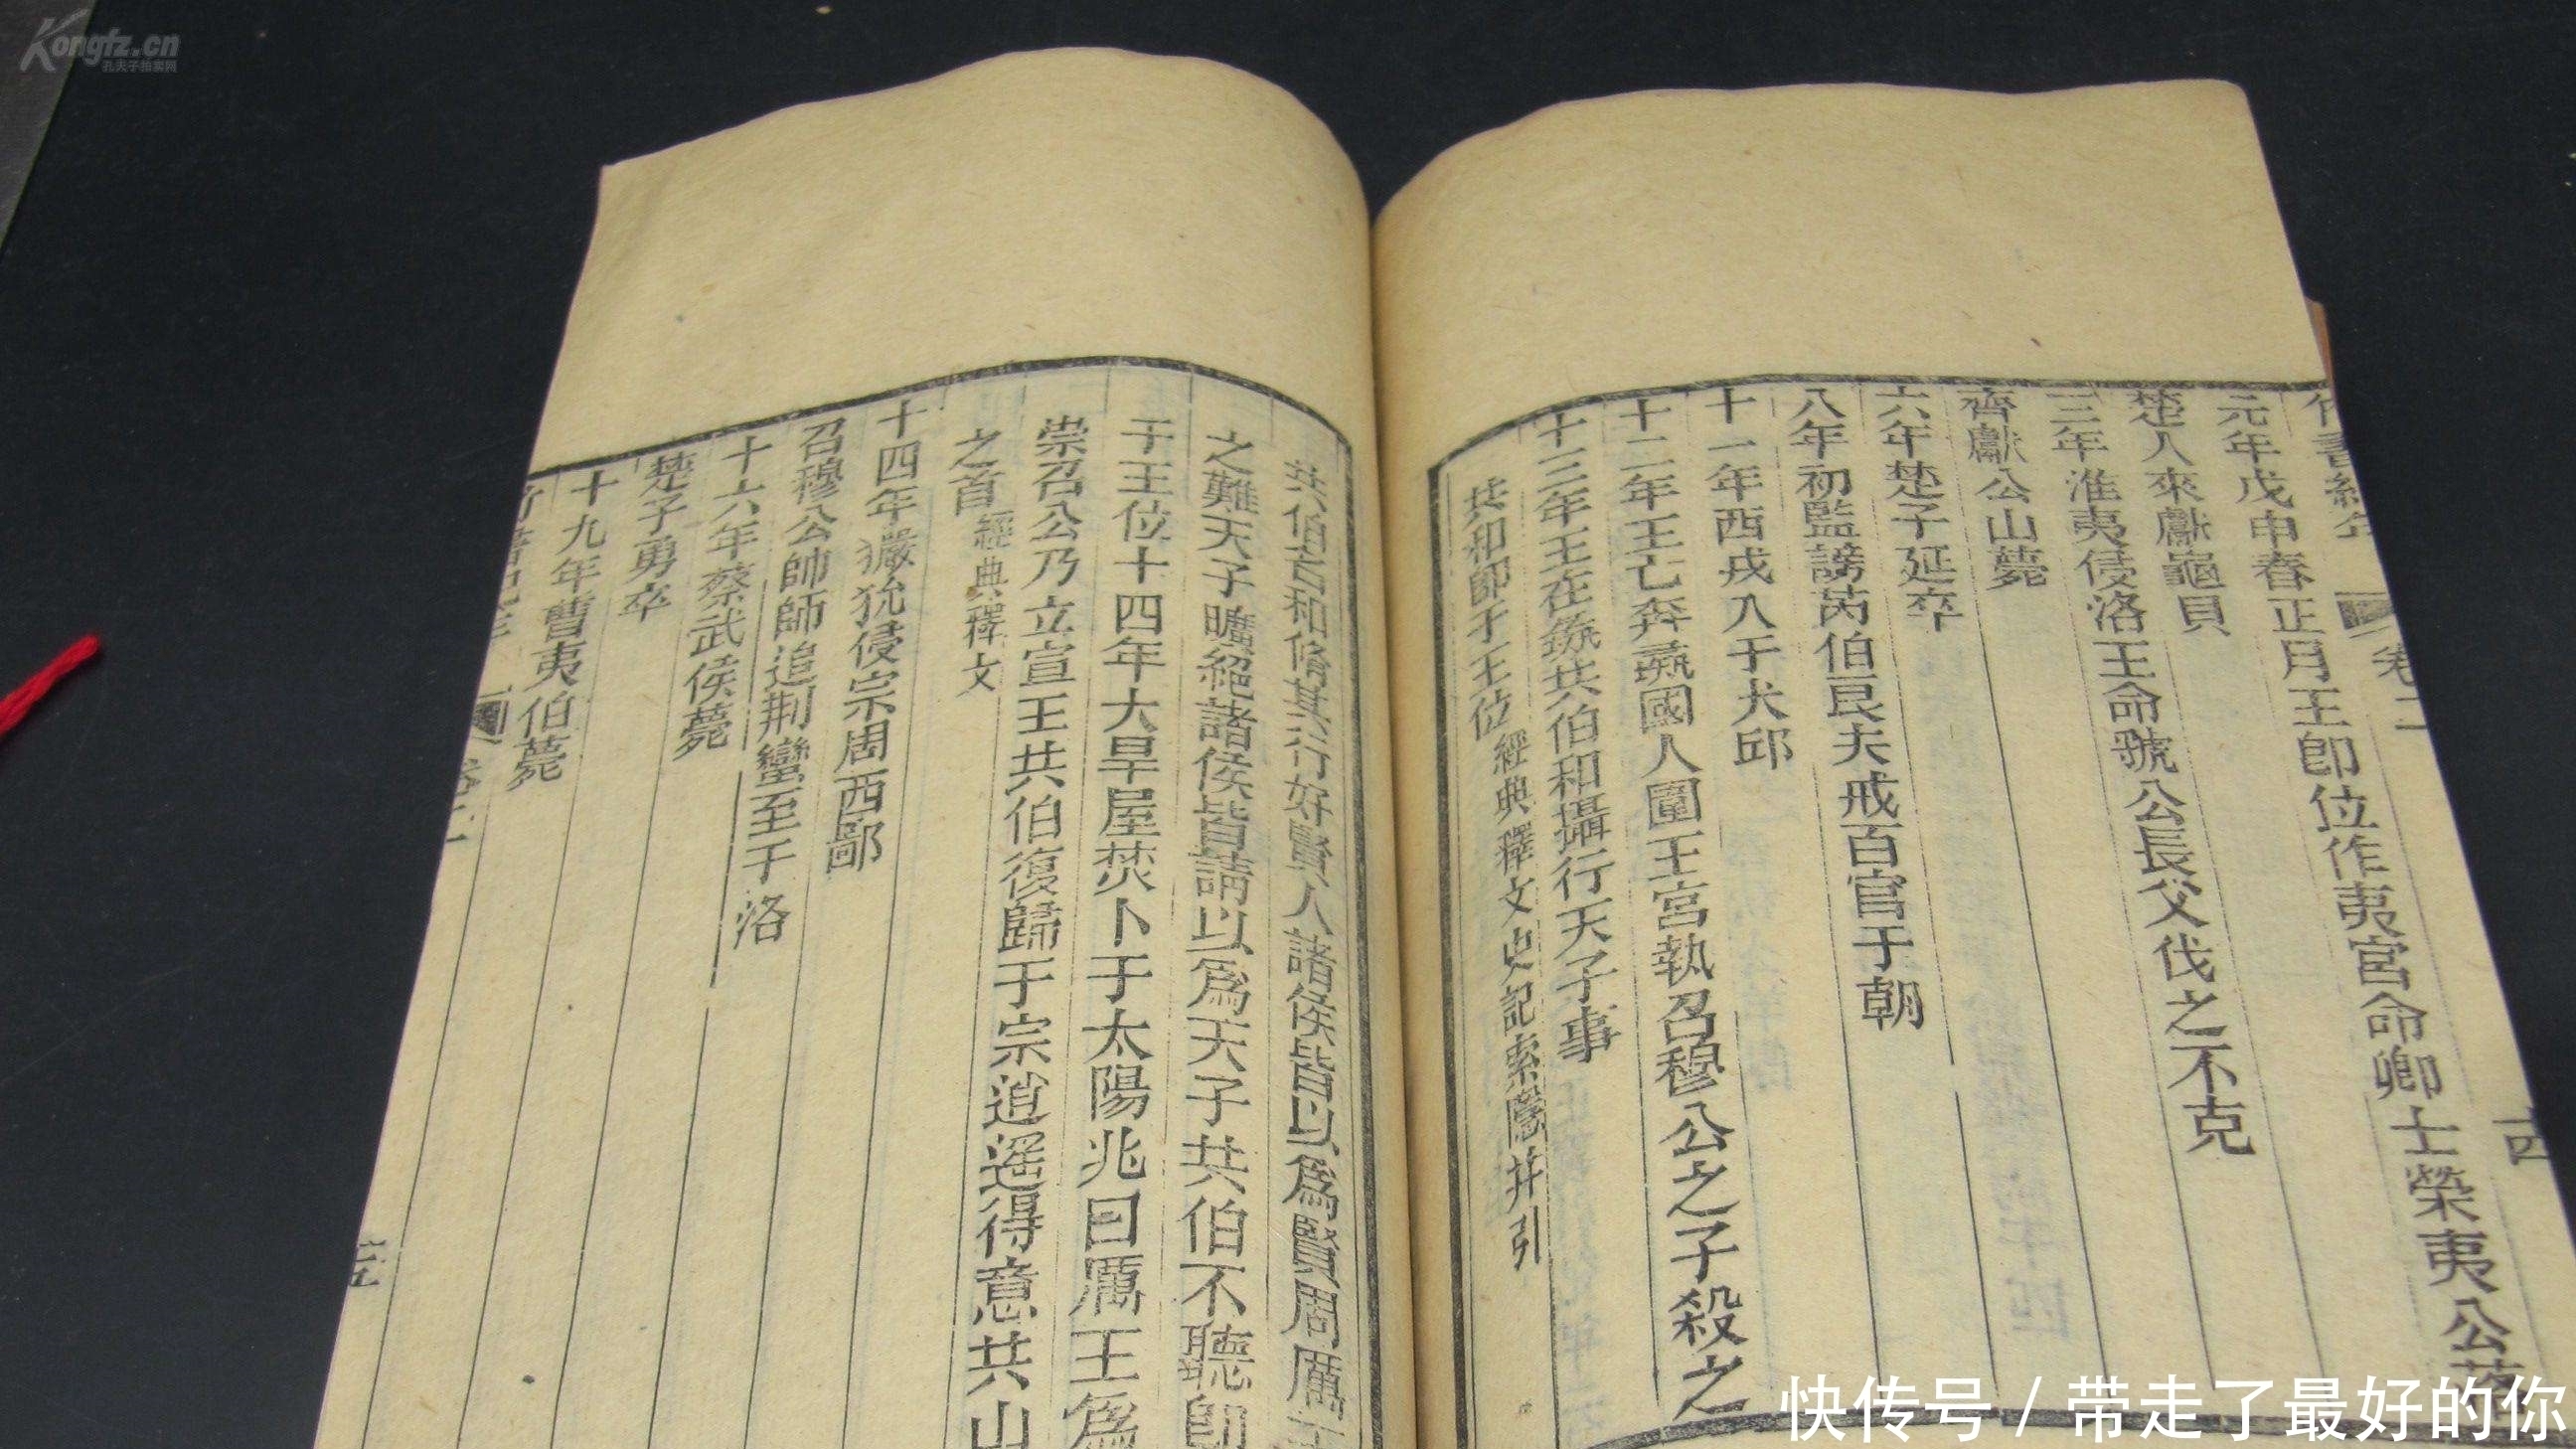 Kongfz.cn
孔夫子拍卖网
竹書紀年 卷二 十四
元年戊申春正月王卽位作夷宮命卿士榮夷公落
楚人來獻龜貝
三年淮夷侵洛王命虢公長父伐之不克
齊獻公山薨
六年楚子延卒
八年初監謗芮伯艮夫戒百官于朝
十一年西戎入于犬邱
十二年王亡奔彘國人圍王宮執召穆公之子殺之
十三年王在彘共伯和攝行天子事
共和卽于王位經典釋文史記索隱并引
共伯名和脩其行好賢人諸侯皆以爲賢周厲王
之難天子曠絕諸侯皆請以爲天子共伯不聽卽
于王位十四年大旱屋焚卜于太陽兆曰厲王爲
崇召公乃立宣王共伯復歸于宗逍遥得意共山
之首經典釋文
十四年玁狁侵宗周西鄙
召穆公帥師追荆蠻至于洛
十六年蔡武侯薨
楚子勇卒
十九年曹夷伯薨
竹書紀年 卷二 十五
快传号/带走了最好的你